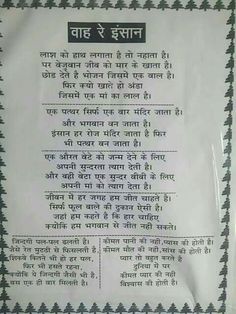 वाह रे इंसान
लाश को हाथ लगाता है तो नहाता है।
पर बेजुबान जीव को मार के खाता है।
छोड़ देते है भोजन जिसमें एक बाल है।
फिर क्यों खाते हो अंडा
जिसमें एक माँ का लाल है।
एक पत्थर सिर्फ एक बार मंदिर जाता है।
और भगवान बन जाता है।
इंसान हर रोज मंदिर जाता है फिर
भी पत्थर बन जाता है।
एक औरत बेटे को जन्म देने के लिए
अपनी सुन्दरता त्याग देती है।
और वही बेटा एक सुन्दर बीबी के लिए
अपनी माँ को त्याग देता है।
जीवन में हर जगह हम जीत चाहते है।
सिर्फ फूल वाले की दुकान ऐसी है।
जहां हम कहते है कि हार चाहिए
क्योंकि हम भगवान से जीत नही सकते।
जिन्दगी पल-पल ढलती है।
जैसे रेत मुठठी से फिसलती है,
शिकवे कितने भी हो हर पल,
फिर भी हसते रहना,
क्योंकि ये जिन्दगी जैसी भी है,
बस एक ही बार मिलती है।
कीमत पानी की नही,प्यास की होती है।
कीमत मौत की नही,सांस की होती है।
प्यार तो बहुत करते है
दुनिया में पर
कीमत प्यार की नही
विश्वास की होती है।